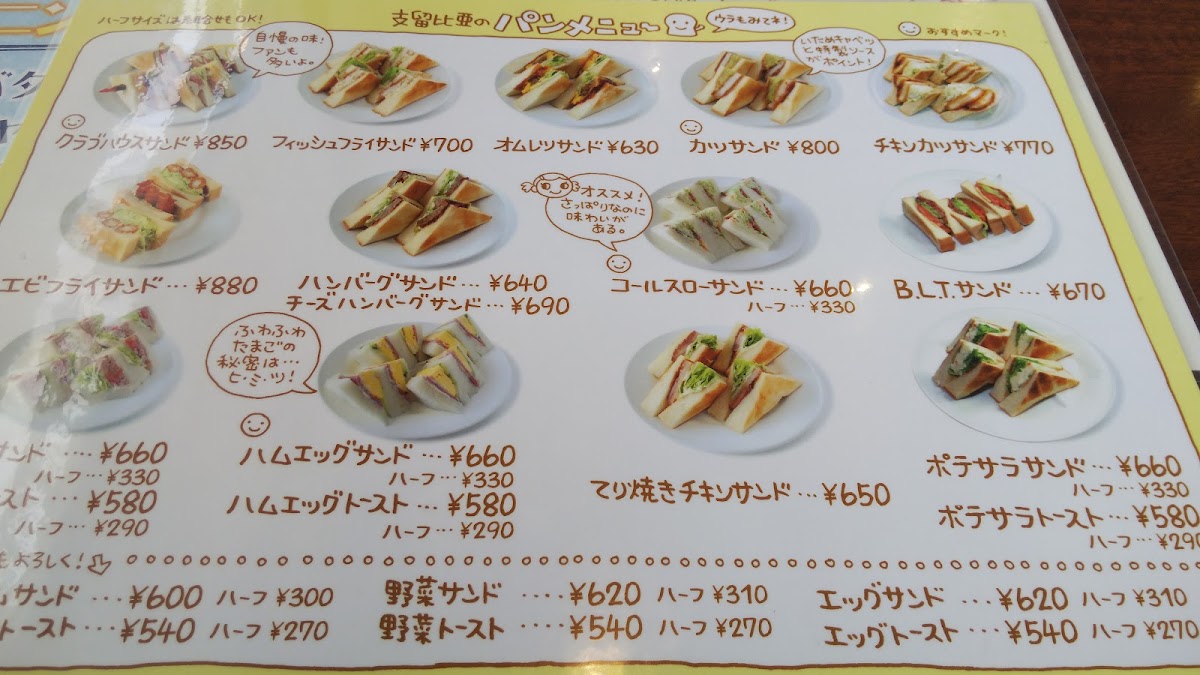 ハーフサイズは組合せもOK!
支留比亜の パンメニュー ウラもみてネ!
おすすめマーク!
自慢の味!
ファンも
多いよ。
いためキャベツ
と特製ソース
がポイント!
クラブハウスサンド ¥850
フィッシュフライサンド ¥700
オムレツサンド ¥630
カツサンド ¥800
チキンカツサンド ¥770
オススメ!
さっぱりなのに
味わいが
ある。
エビフライサンド… ¥880
ハンバーグサンド… ¥640
チーズハンバーグサンド… ¥690
コールスローサンド… ¥660
ハーフ… ¥330
B.L.T.サンド… ¥670
ふわふわ
たまごの
秘密は…
ヒ・ミ・ツ!
サンド…. ¥660
ハーフ… ¥330
スト… ¥580
ハーフ… ¥290
ハムエッグサンド… ¥660
ハーフ… ¥330
ハムエッグトースト… ¥580
ハーフ… ¥290
てり焼きチキンサンド… ¥650
ポテサラサンド… ¥660
ハーフ… ¥330
ポテサラトースト… ¥580
ハーフ… ¥290
もよろしく!
ムサンド… ¥600 ハーフ ¥300
トースト…. ¥540 ハーフ ¥270
野菜サンド …. ¥620 ハーフ ¥310
野菜トースト …. ¥540 ハーフ ¥270
エッグサンド …. ¥620 ハーフ ¥310
エッグトースト…. ¥540 ハーフ ¥270